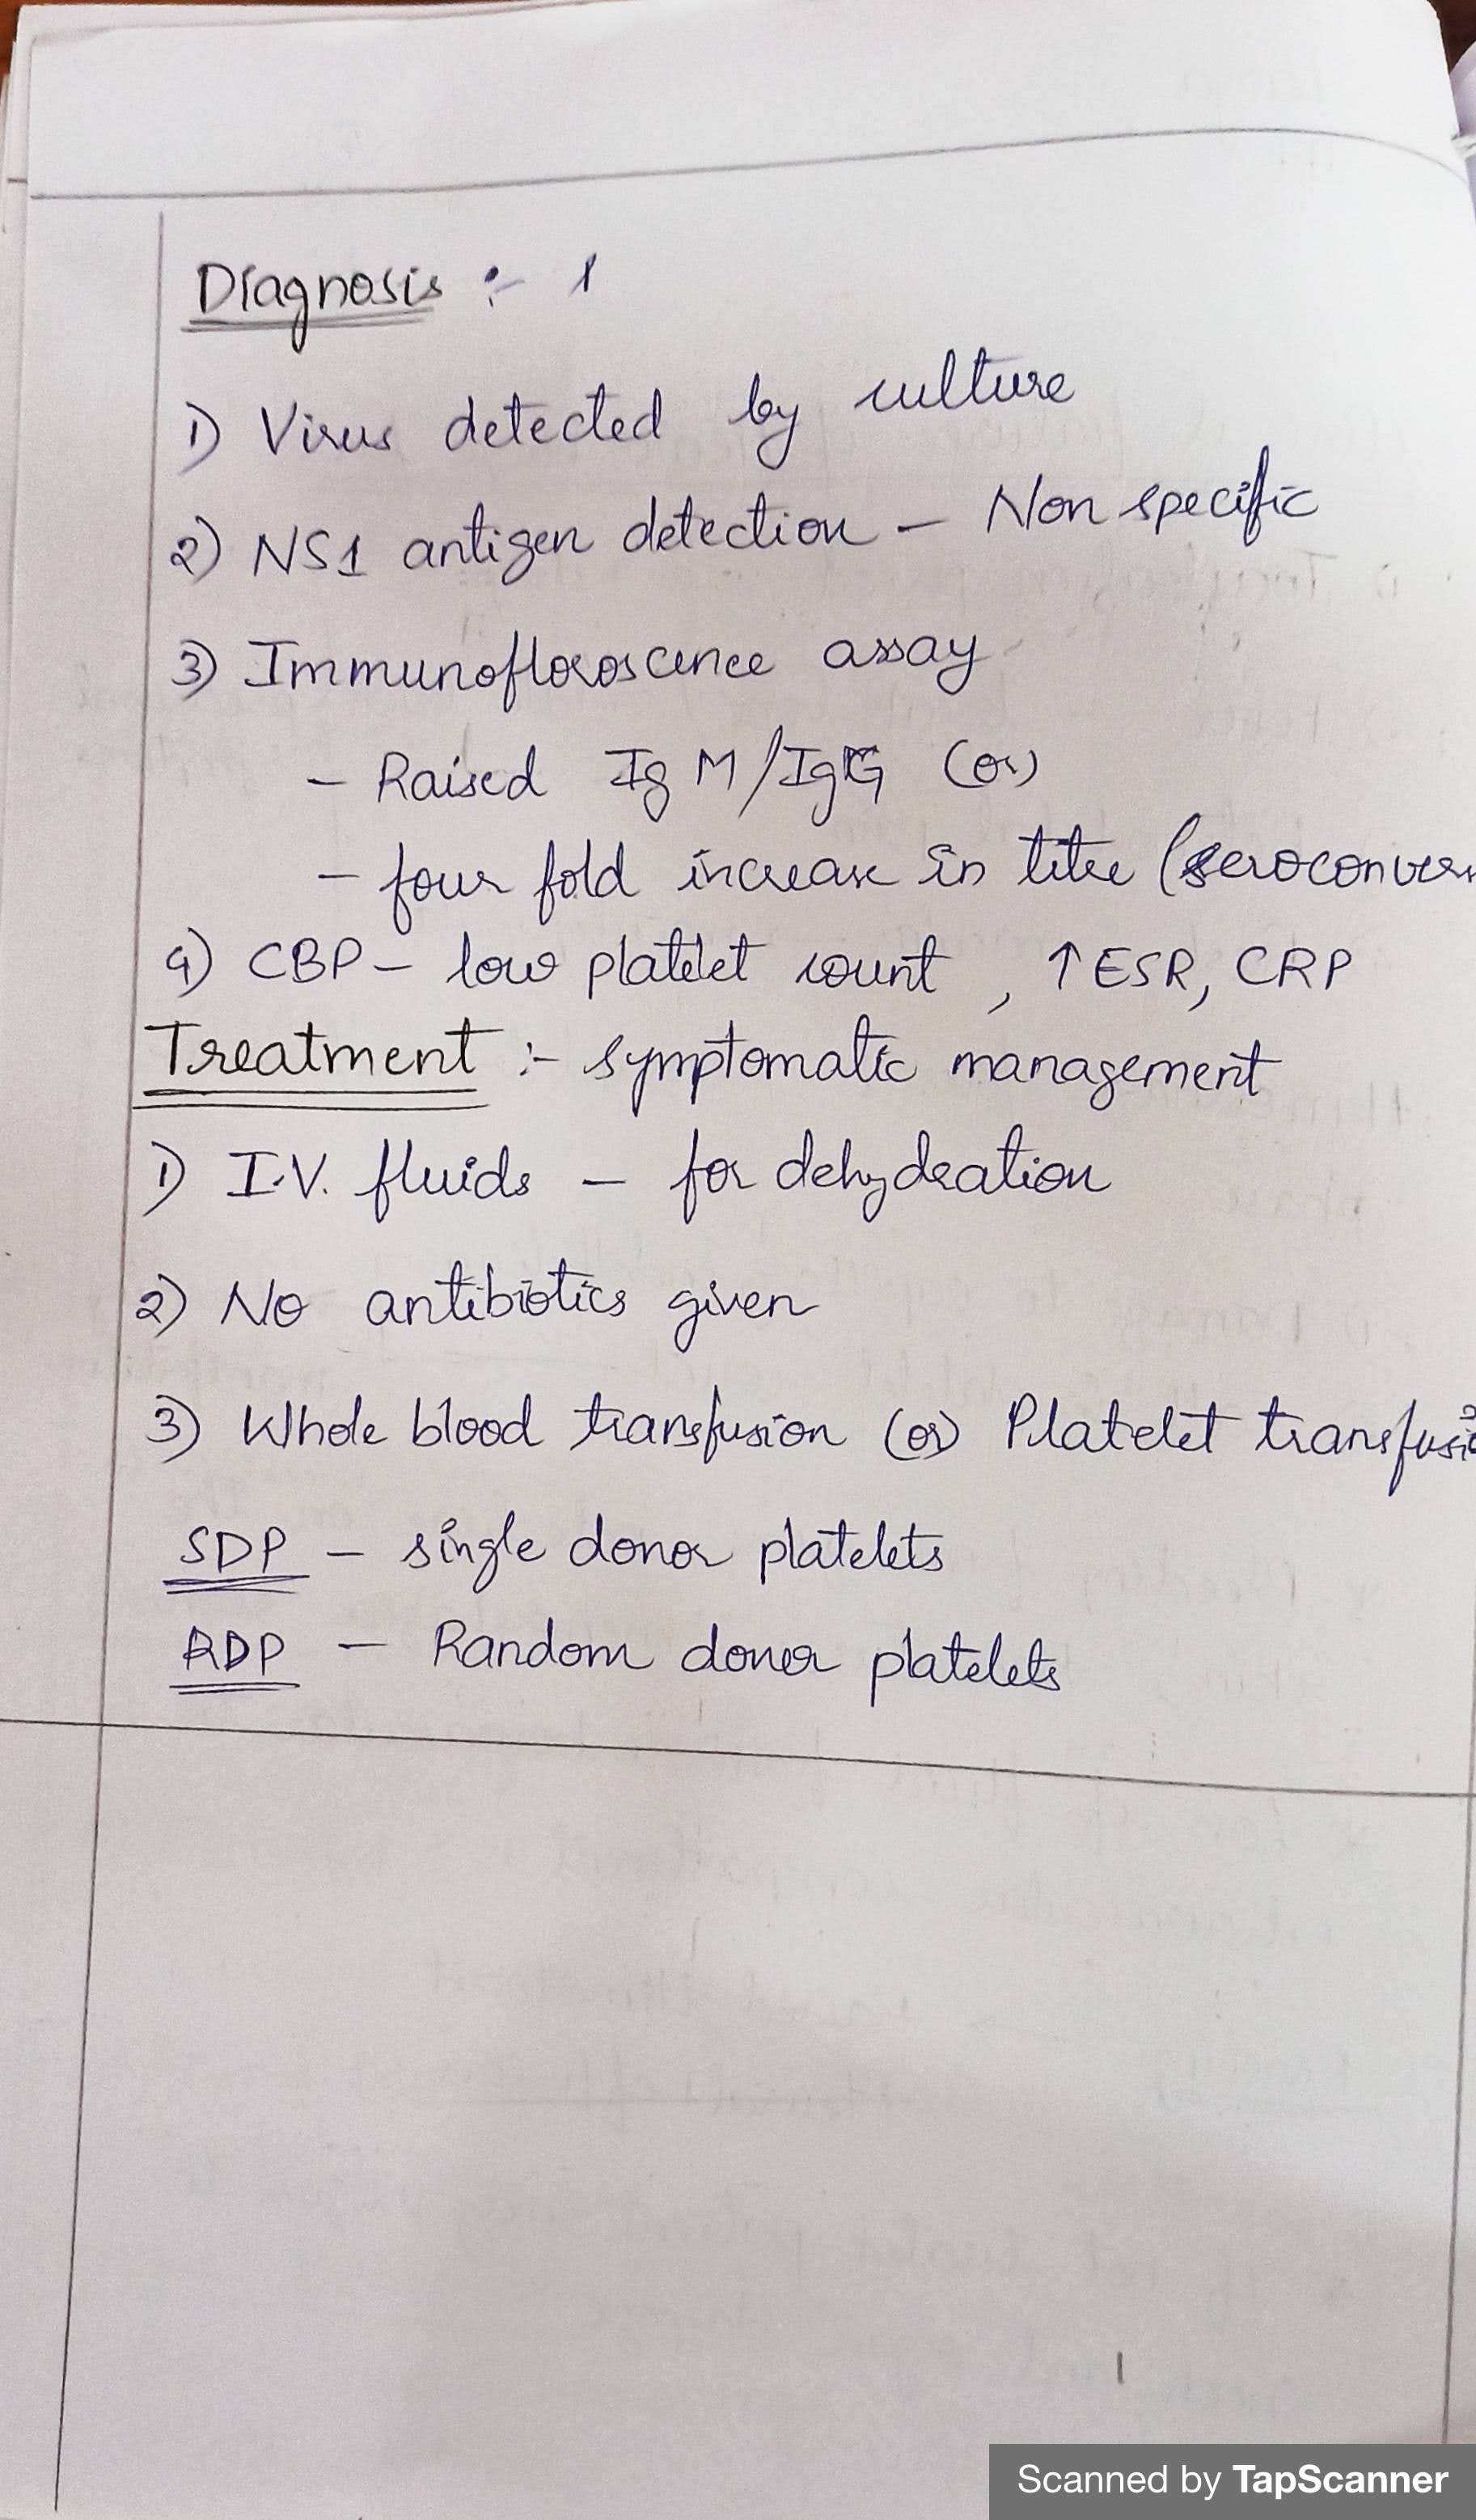 Diagnosis :-
1) Virus detected by culture
2) NS1 antigen detection - Non specific
3) Immunofloroscence assay
- Raised IgM/IgG (or)
- four fold increase in titre (seroconver
4) CBP - low platelet count , ↑ ESR, CRP
Treatment :- symptomatic management
1) I.V. fluids - for dehydration
2) No antibiotics given
3) Whole blood transfusion (or) Platelet transfusi
SDP - single donor platelets
RDP - Random donor platelets
Scanned by TapScanner